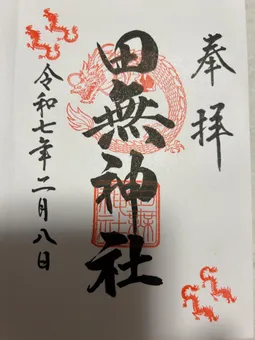 奉拝
田無神社
令和七年二月八日